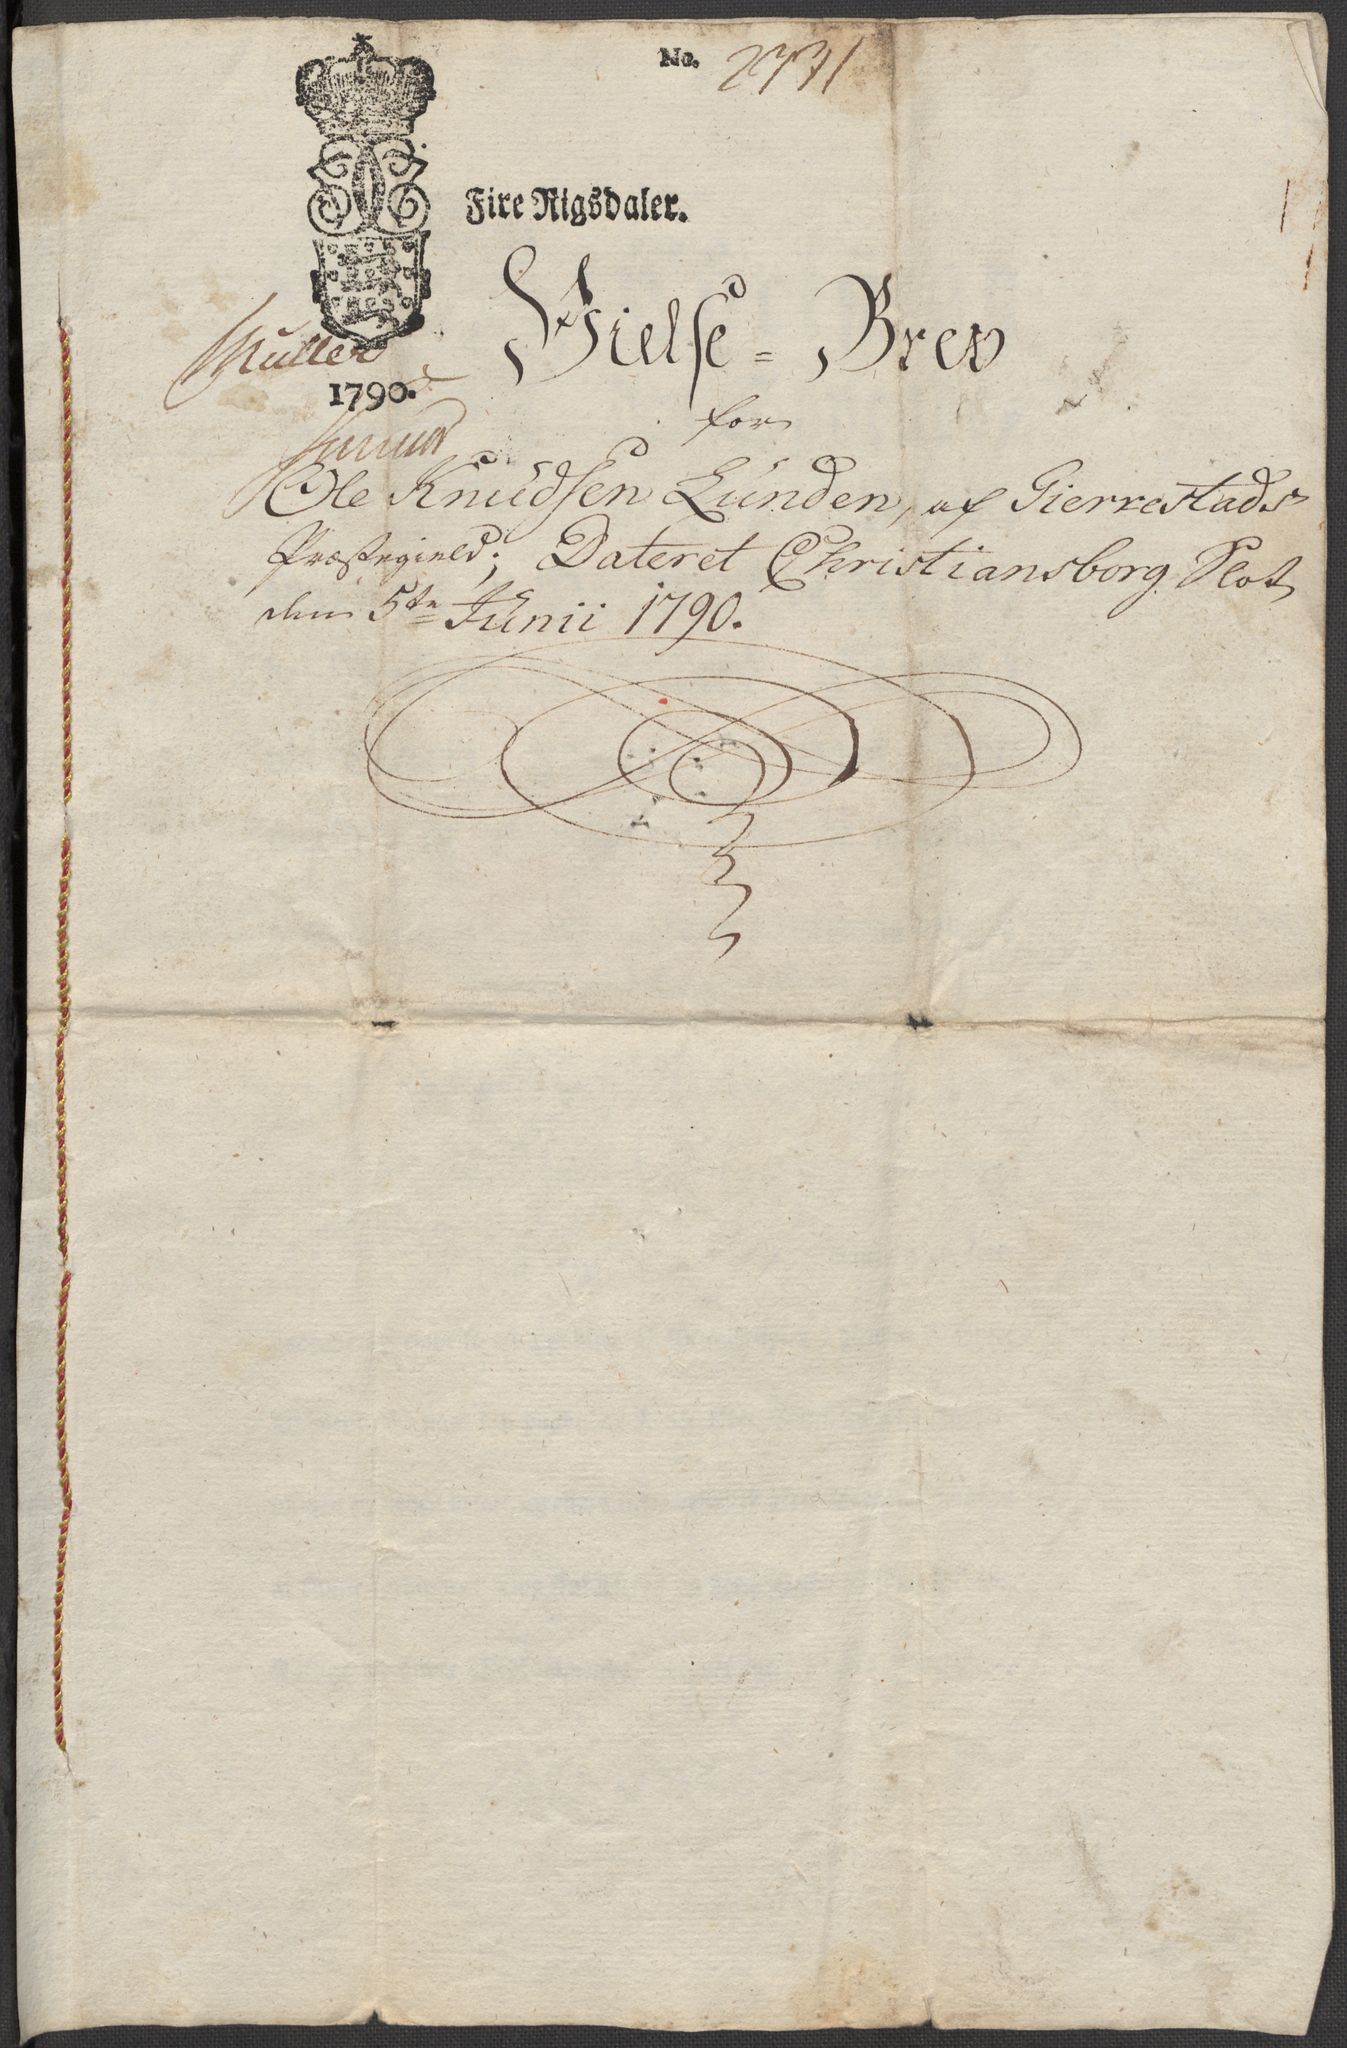 No. 2771
Fire Rigsdaler.
Vielse = Brev
Müller
1790.
for
Ole Knudsen Lunden, af Gierrestads
Præstegield; Dateret Christiansborg Slot
den 5te Junii 1790.